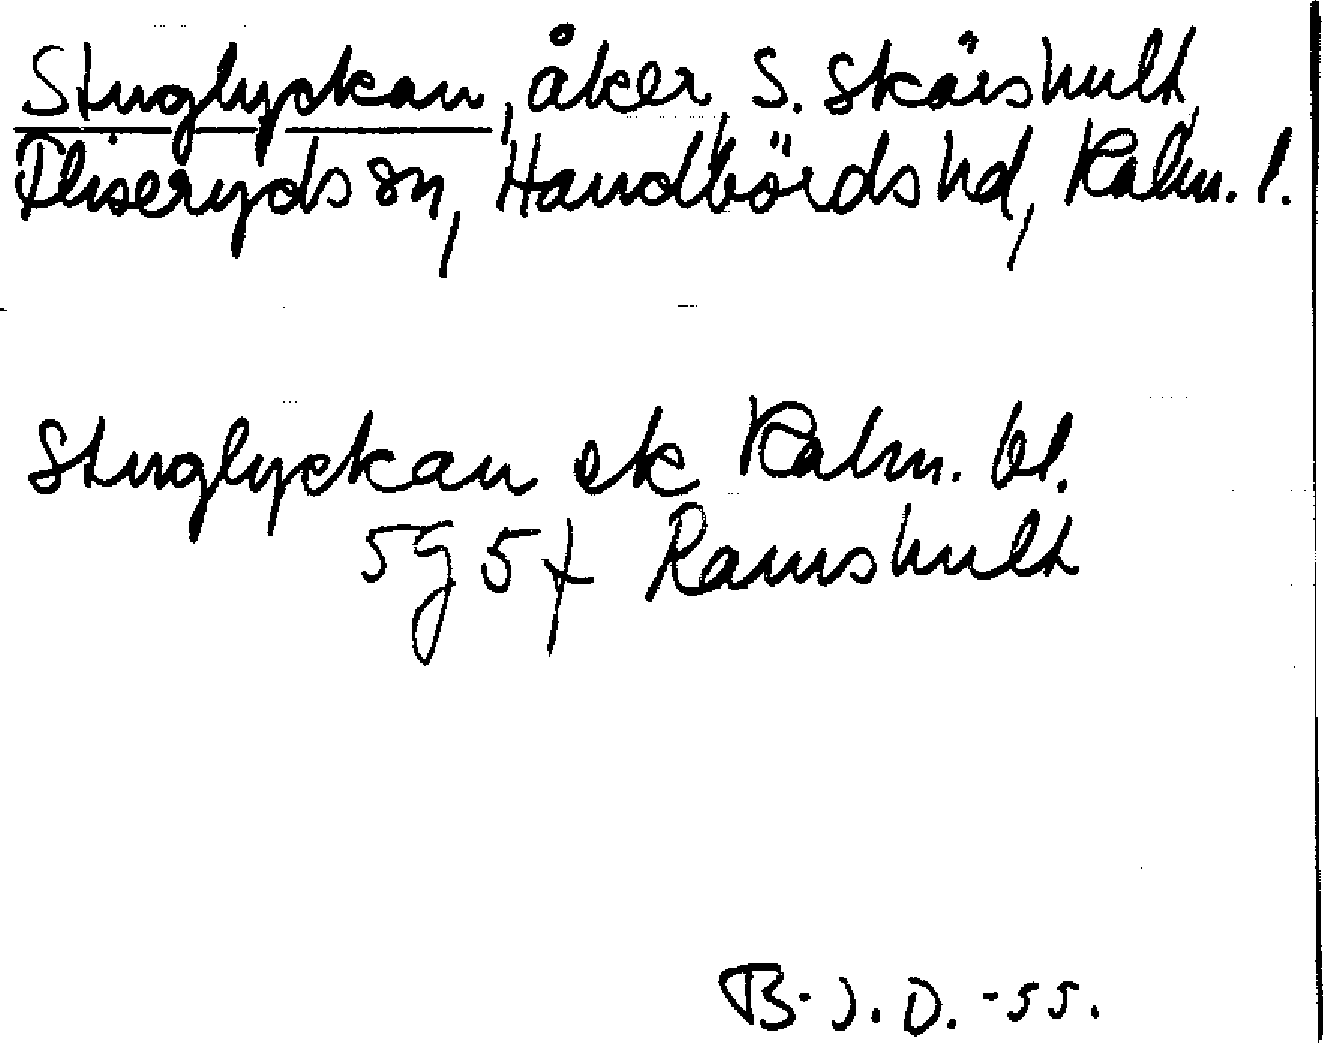 Stuglyckan, åker, S. Skärshult,
Fliseryds sn, Handbörds hd, Kalm. l.
Stuglyckan ek Kalm. bl.
5g 5f Ramshult
B-J.D. -55.